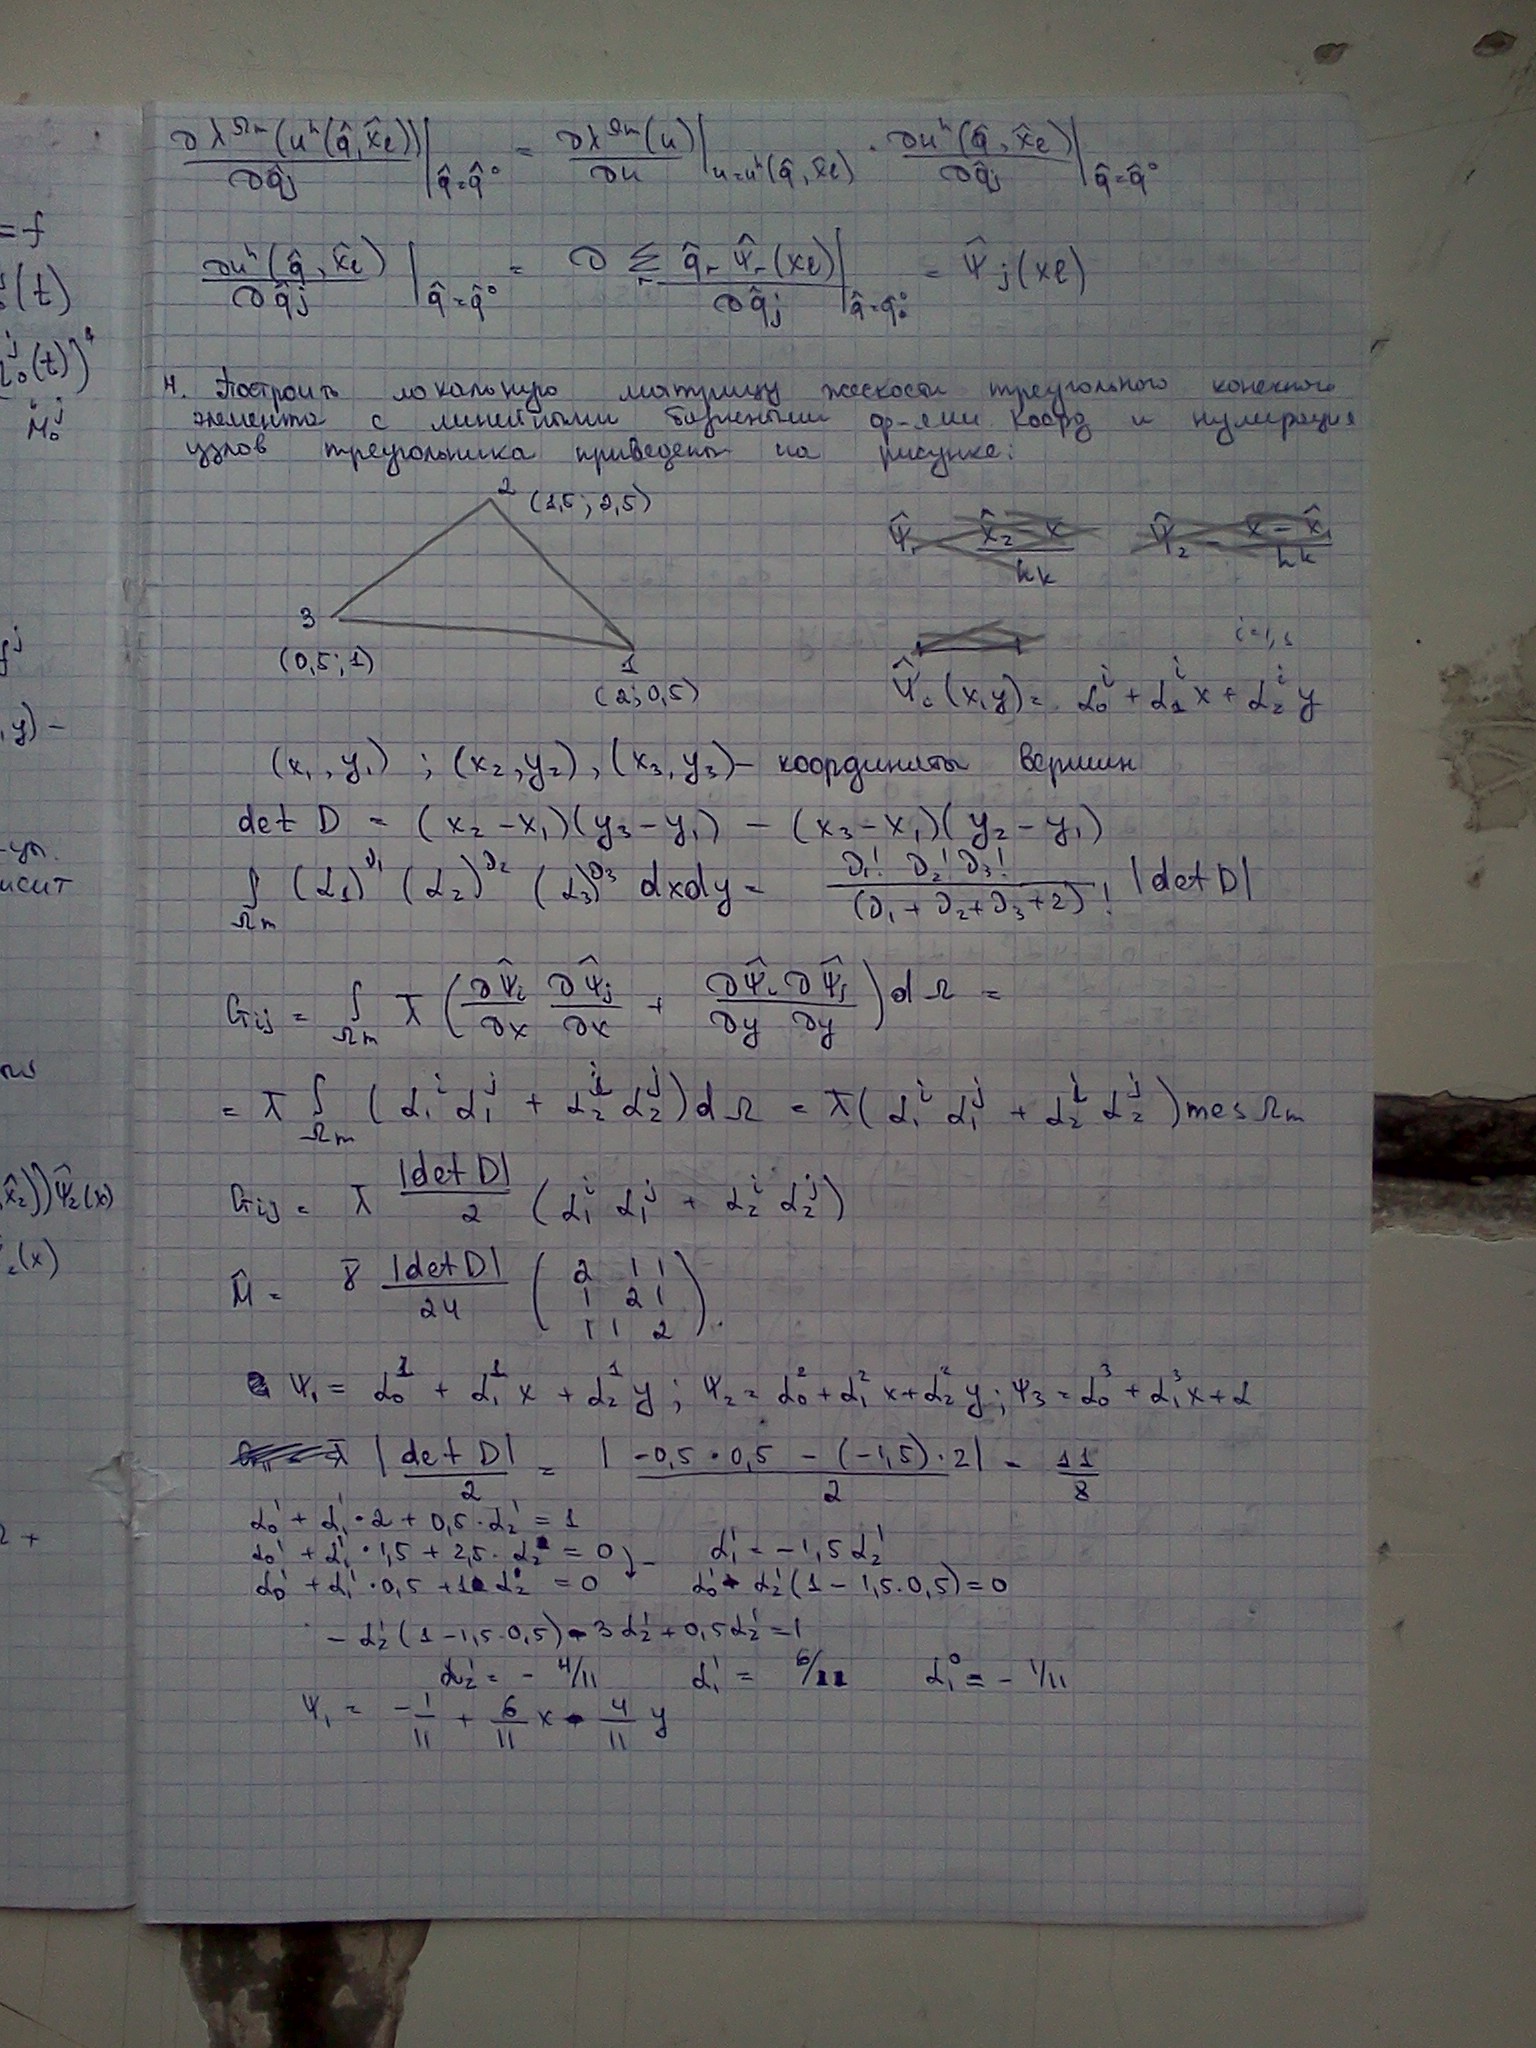 ∂λ^Ωm(u^h(q̂, x̂e))/∂q̂j |q̂=q̂⁰ = ∂λ^Ωm(u)/∂u |u=u^h(q̂, x̂e) · ∂u^h(q̂, x̂e)/∂q̂j |q̂=q̂⁰
∂u^h(q̂, x̂e)/∂q̂j |q̂=q̂⁰ = ∂ Σr q̂r ψ̂r(xe)/∂q̂j |q̂=q̂⁰ = ψ̂j(xe)
4. Построить локальную матрицу жескости треугольного конечного
элемента с линейными базисными ф-ями коорд и нумерация
узлов треугольника приведены на рисунке:
2 (1,5; 2,5)
3
(0,5; 1)
1
(2; 0,5)
i=1,3
ψ̂i(x,y) = α0^i + α1^i x + α2^i y
(x1, y1) ; (x2, y2), (x3, y3) - координаты вершин
det D = (x2 - x1)(y3 - y1) - (x3 - x1)(y2 - y1)
∫Ωm (L1)^∂1 (L2)^∂2 (L3)^∂3 dxdy = ∂1! ∂2! ∂3! / (∂1 + ∂2 + ∂3 + 2)! |det D|
Gij = ∫Ωm λ̄ (∂ψ̂i/∂x ∂ψ̂j/∂x + ∂ψ̂i ∂ψ̂j/∂y ∂y) dΩ =
= λ̄ ∫Ωm (α1^i α1^j + α2^i α2^j) dΩ = λ̄ (α1^i α1^j + α2^i α2^j) mes Ωm
Gij = λ̄ |det D|/2 (α1^i α1^j + α2^i α2^j)
M̂ = γ̄ |det D|/24 (2 1 1
1 2 1
1 1 2).
ψ1 = α0^1 + α1^1 x + α2^1 y ; ψ2 = α0^2 + α1^2 x + α2^2 y ; ψ3 = α0^3 + α1^3 x + α
λ̄ |det D|/2 = |-0,5 · 0,5 - (-1,5) · 2|/2 = 11/8
α0^1 + α1^1 · 2 + 0,5 · α2^1 = 1
α0^1 + α1^1 · 1,5 + 2,5 · α2^1 = 0 ) - α1^1 = -1,5 α2^1
α0^1 + α1^1 · 0,5 + 1 α2^1 = 0 α0^1 + α2^1 (1 - 1,5 · 0,5) = 0
- α2^1 (1 - 1,5 · 0,5) - 3 α2^1 + 0,5 α2^1 = 1
α2^1 = - 4/11 α1^1 = 6/11 α1^0 = - 1/11
ψ1 = -1/11 + 6/11 x - 4/11 y